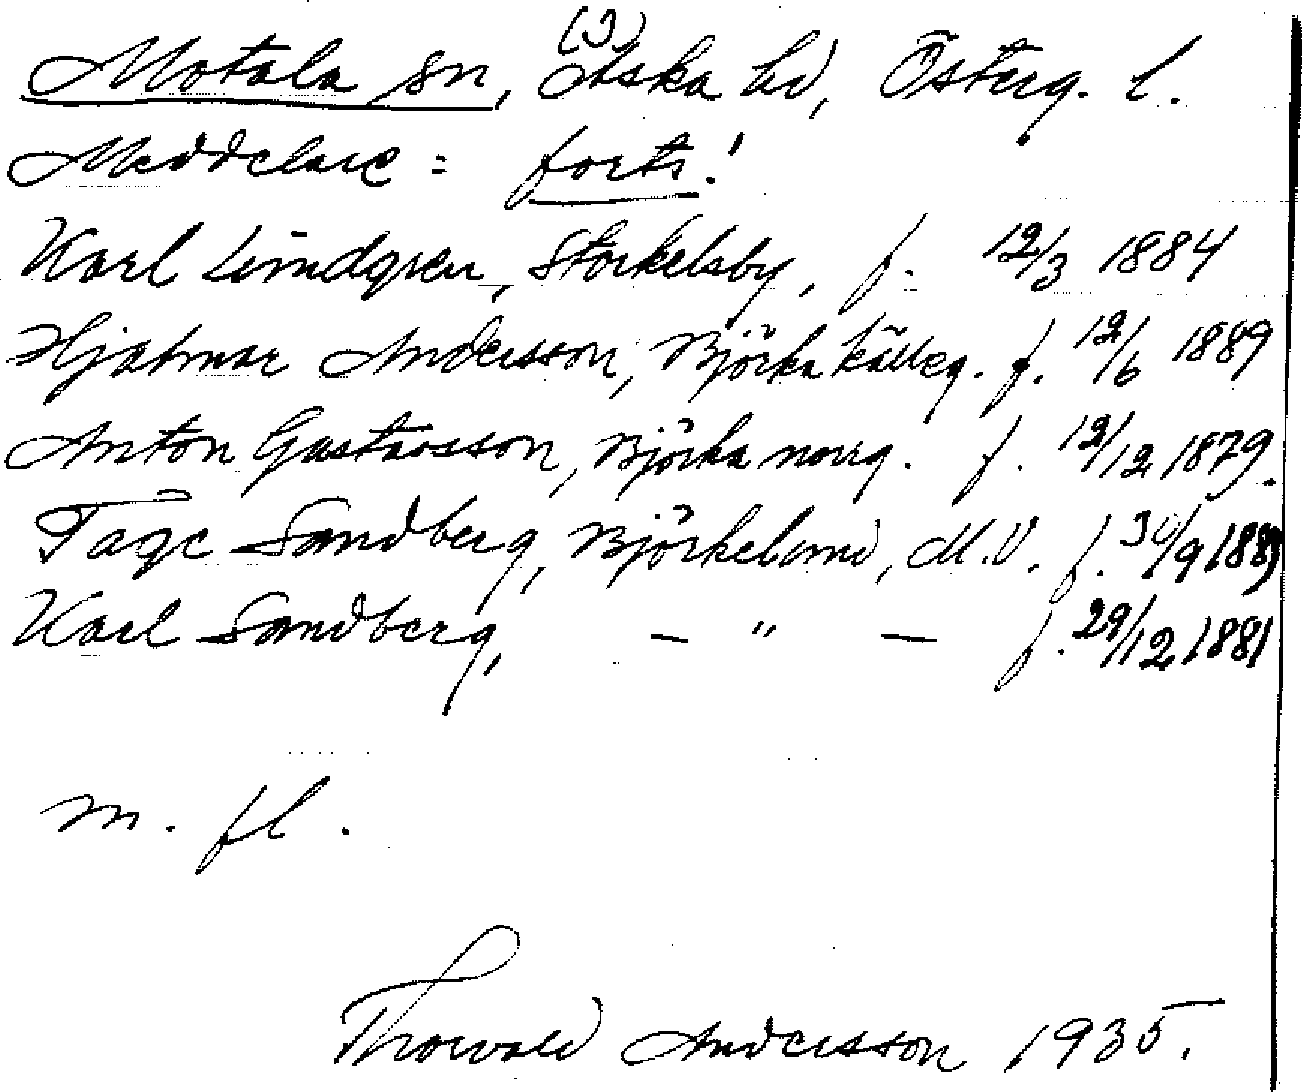 (3)
Motala sn, Aska hd, Österg. l.
Meddelare: forts!
Karl Lindgren, Storkelsby, f. 12/3 1884
Hjalmar Andersson, Björka källeg. f. 12/6 1889
Anton Gustavsson, Björka norrg. f. 12/12 1879.
Tage Sandberg, Björkelund, M.V. f. 30/9 1889
Karl Sandberg, — " — f. 29/12 1881
m. fl.
Thorvald Andersson 1935.